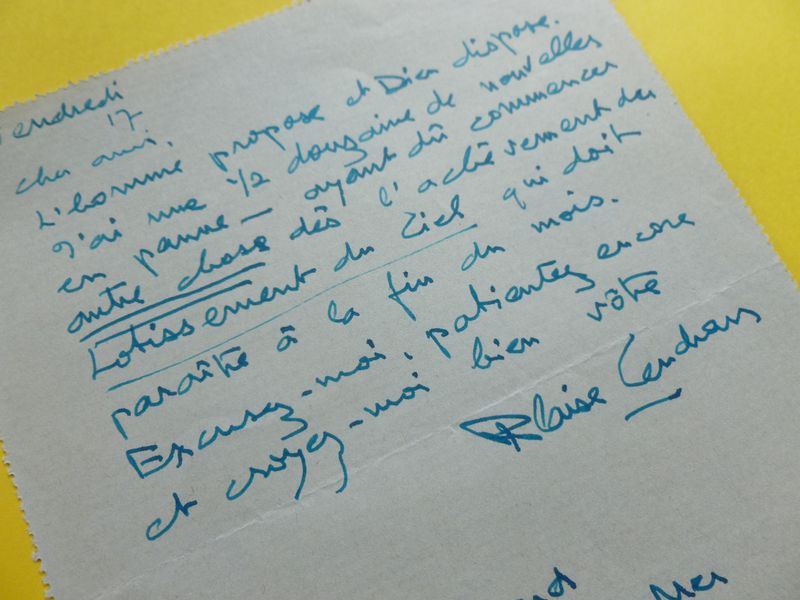 Vendredi
17
cher ami,
L'homme propose et Dieu dispose.
J'ai une 1/2 douzaine de nouvelles
en panne — ayant dû commencer
autre chose dès l'achèvement du
Lotissement du Ciel qui doit
paraître à la fin du mois.
Excusez-moi, patientez encore
et croyez-moi bien vôtre
Blaise Cendrars